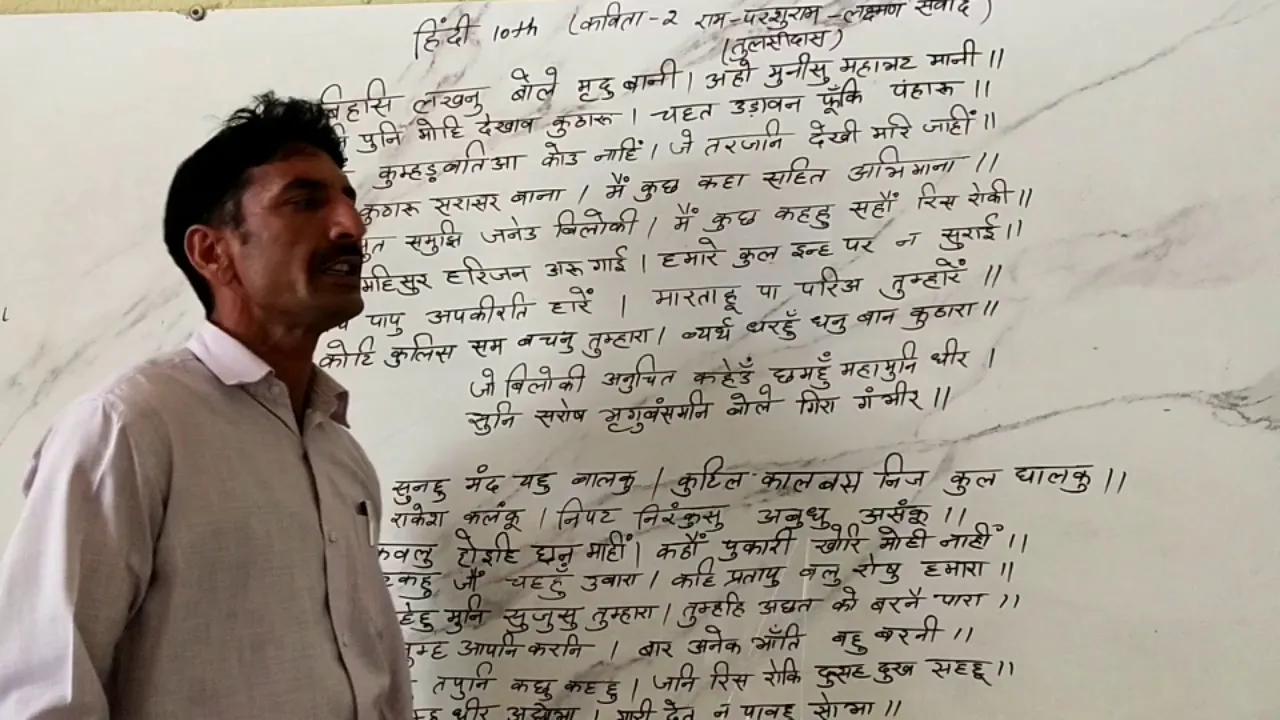 हिंदी 10th (कविता-2 राम-परशुराम-लक्ष्मण संवाद)
(तुलसीदास)
बिहसि लखनु बोले मृदु बानी। अहो मुनीसु महाभट मानी॥
पुनि मोहि देखाव कुठारू। चहत उड़ावन फूँकि पहारू॥
कुम्हड़बतिआ कोउ नाहिं। जे तरजनि देखी मरि जाहीं॥
कुठारू सरासर बाना। मैं कुछ कहा सहित अभिमाना॥
समुझि जनेउ बिलोकी। मैं कुछ कहहु सहौं रिस रोकी॥
महिसुर हरिजन अरू गाई। हमारे कुल इन्ह पर न सुराई॥
पापु अपकीरति हारें। मारताहू पा परिअ तुम्हारें॥
कोटि कुलिस सम बचनु तुम्हारा। ब्यर्थ धरहुँ धनु बान कुठारा॥
जो बिलोकी अनुचित कहेउँ छमहुँ महामुनि धीर।
सुनि सरोष भृगुबंसमनि बोले गिरा गंभीर॥
सुनहु मंद यहु बालकु। कुटिल कालबस निज कुल घालकु॥
राकेश कलंकू। निपट निरंकुसु अबुधु असंकू॥
कवलु होइहि छनु माहीं। कहौं पुकारी खोरि मोही नाहीं॥
जौं चहहुँ उबारा। कहि प्रतापु बलु रोषु हमारा॥
मुनि सुजुसु तुम्हारा। तुम्हहि अछत को बरनै पारा॥
तुम्ह आपनि करनि। बार अनेक भाँति बहु बरनी॥
तपुनि कछु कहहु। जनि रिस रोकि दुसह दुख सहहू॥
धीर अछोभा। गारी देत न पावहु सोभा॥